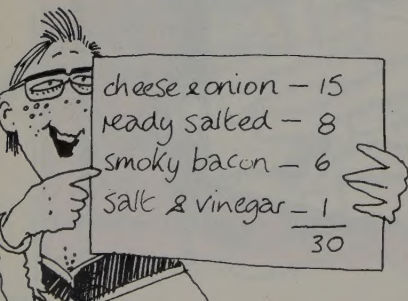 cheese & onion – 15
ready salted – 8
smoky bacon – 6
salt & vinegar – 1
30